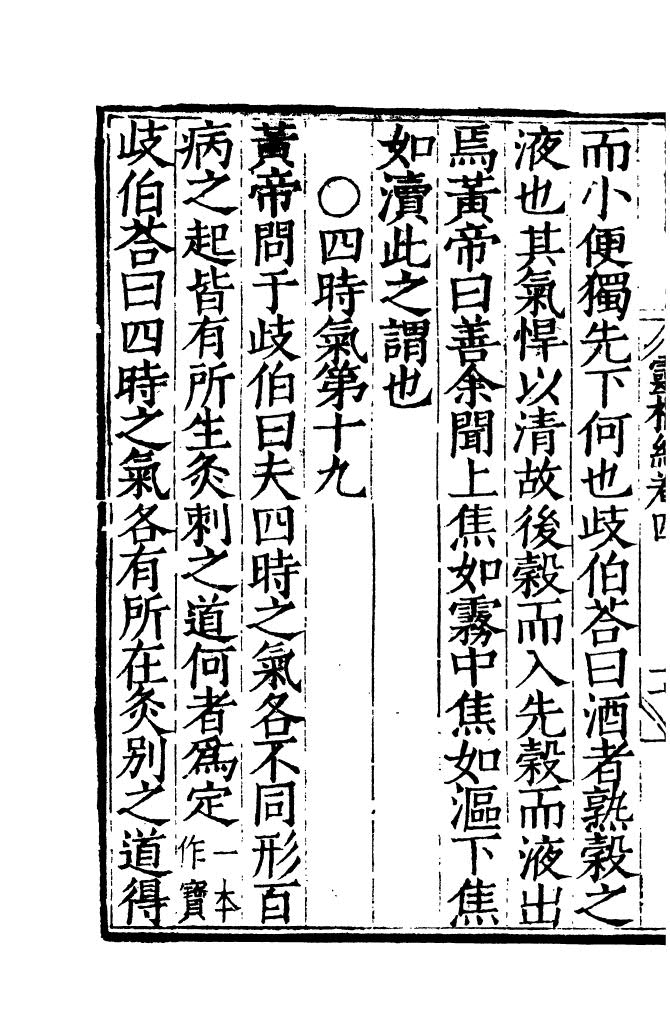 靈樞經卷四
而小便獨先下何也歧伯荅曰酒者熟穀之
液也其氣悍以清故後穀而入先穀而液出
焉黃帝曰善余聞上焦如霧中焦如漚下焦
如瀆此之謂也
○四時氣第十九
黃帝問于歧伯曰夫四時之氣各不同形百
病之起皆有所生灸刺之道何者爲定一本作寶
歧伯荅曰四時之氣各有所在灸别之道得